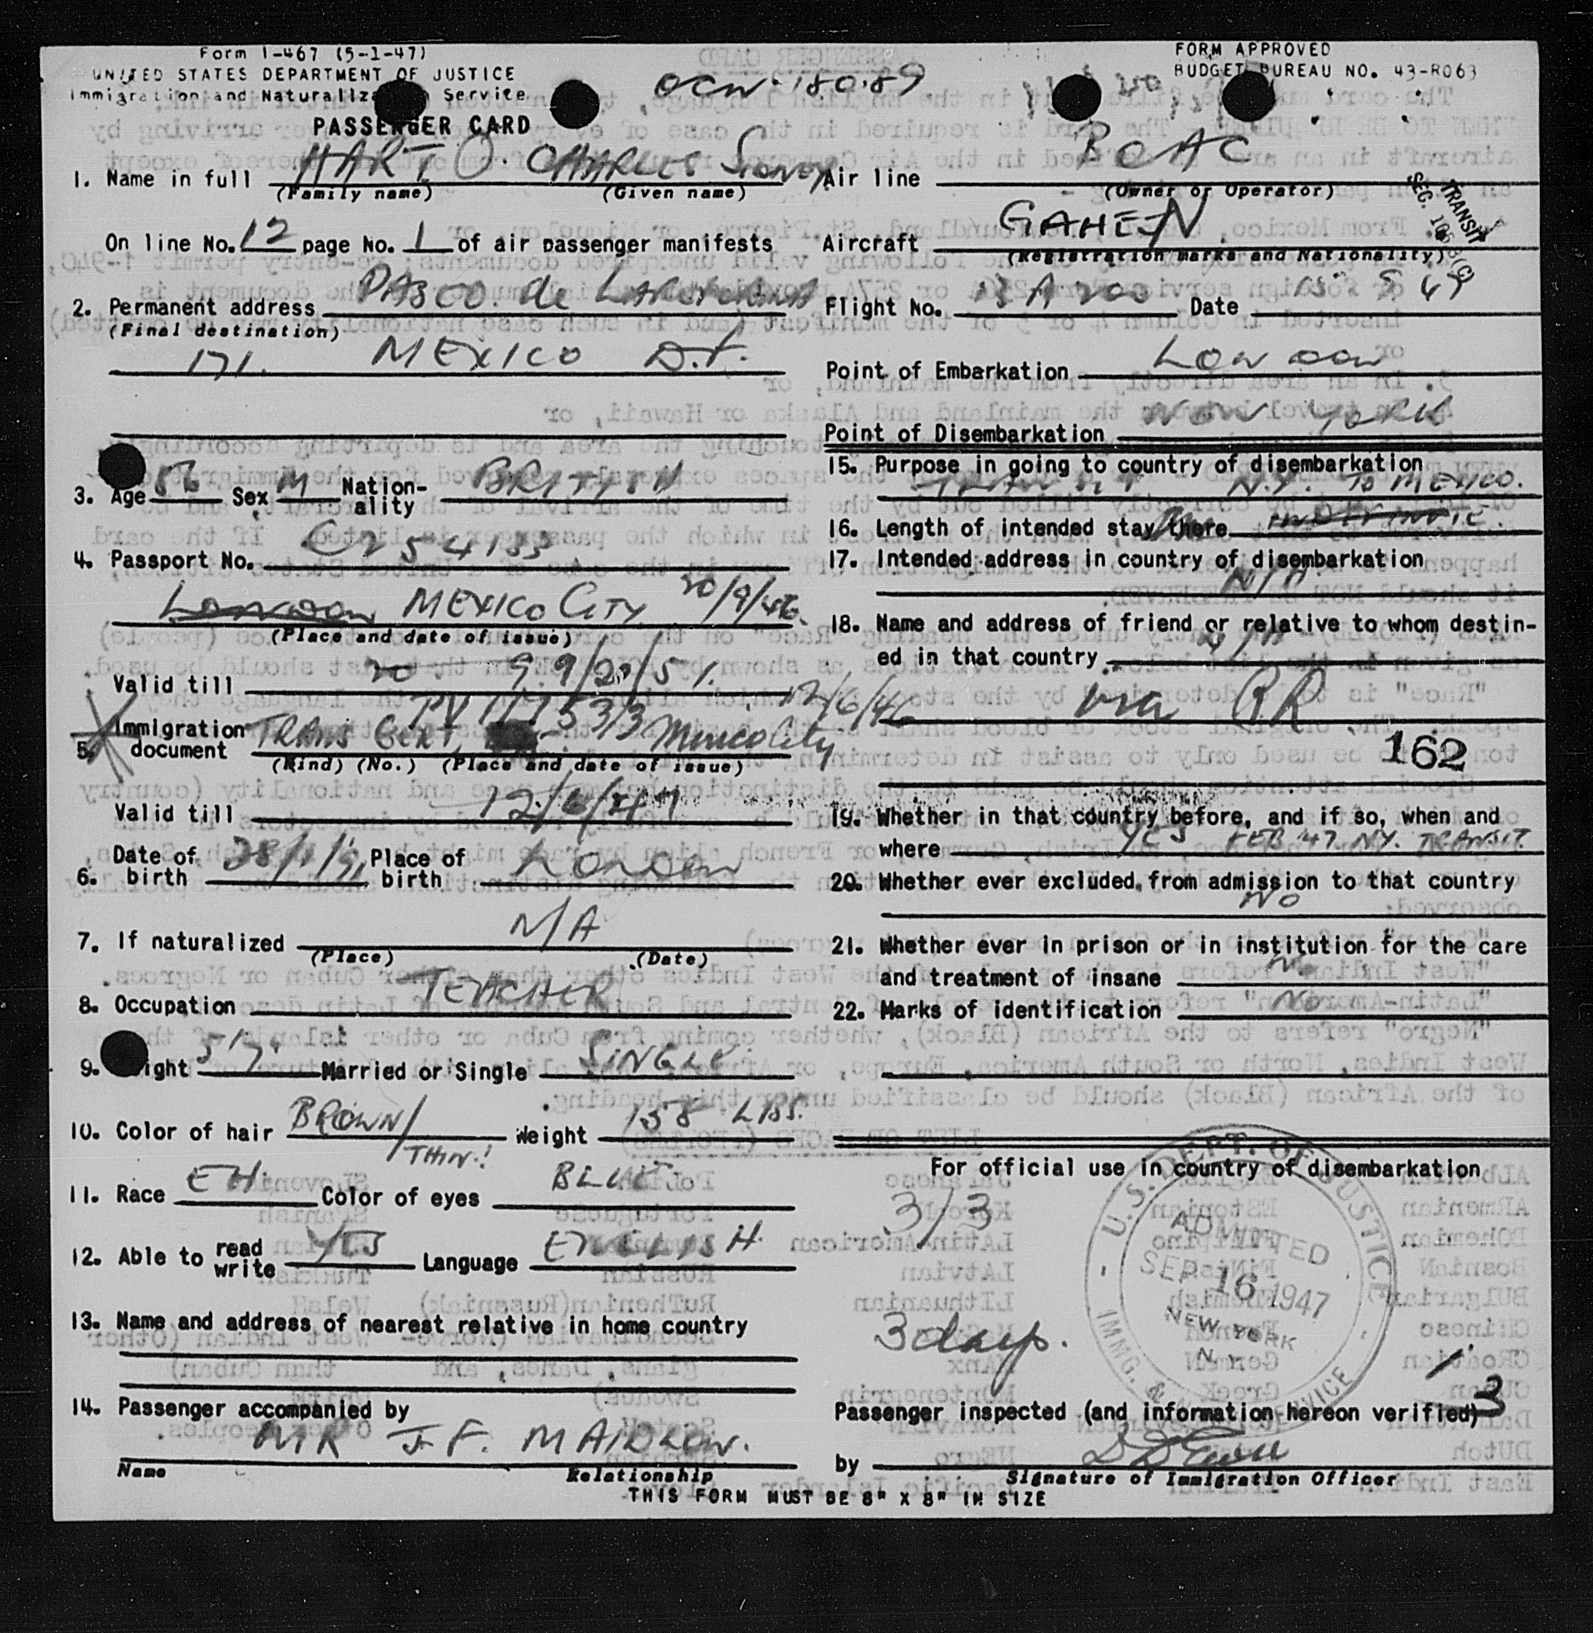 Form I-467 (5-1-47)
UNITED STATES DEPARTMENT OF JUSTICE
Immigration and Naturalization Service
PASSENGER CARD
FORM APPROVED
BUDGET BUREAU NO. 43-R063
1. Name in full HART. O. CHARLES Sidney
(Family name) (Given name)
On line No. 12 page No. 1 of air passenger manifests
2. Permanent address PASCO. de
(Final destination)
171. MEXICO D.F.
3. Age 56 Sex M Nation-ality BRITISH
4. Passport No. C254133
London MEXICO CITY 20/9/46.
(Place and date of issue)
Valid till 20 9 9/20/51.
PV 111533 12/6/46
5. Immigration document TRANS CERT. Mexico City
(Kind) (No.) (Place and date of issue)
Valid till 12/6/47
6. Date of birth 28/1/91 Place of birth London
7. If naturalized N/A
(Place) (Date)
8. Occupation TEACHER
9. Height 5'7" Married or Single SINGLE.
10. Color of hair BROWN/THIN! Weight 138 LBS.
11. Race EH. Color of eyes BLUE
12. Able to read write YES Language ENGLISH.
13. Name and address of nearest relative in home country
14. Passenger accompanied by
MR J.F. MAIDLOW.
Name Relationship
Air line BOAC
(Owner or Operator)
TRANSIT
Aircraft GAHEN
(Registration marks and Nationality)
Flight No. BA 200 Date 15 9 47
Point of Embarkation London
Point of Disembarkation NEW YORK
15. Purpose in going to country of disembarkation
TRANSIT N.Y. TO MEXICO.
16. Length of intended stay there
17. Intended address in country of disembarkation
N/A
18. Name and address of friend or relative to whom destin-
ed in that country N/A
via RR
162
19. Whether in that country before, and if so, when and
where YES FEB '47 N.Y. TRANSIT
20. Whether ever excluded from admission to that country
NO
21. Whether ever in prison or in institution for the care
and treatment of insane No
22. Marks of identification No
For official use in country of disembarkation
3/3
3 days.
U.S. DEPT. OF JUSTICE
ADMITTED
SEP 16 1947
NEW YORK
N.Y.
IMMG. & SERVICE
3
Passenger inspected (and information hereon verified)
by
Signature of Immigration Officer
THIS FORM MUST BE 8" X 8" IN SIZE